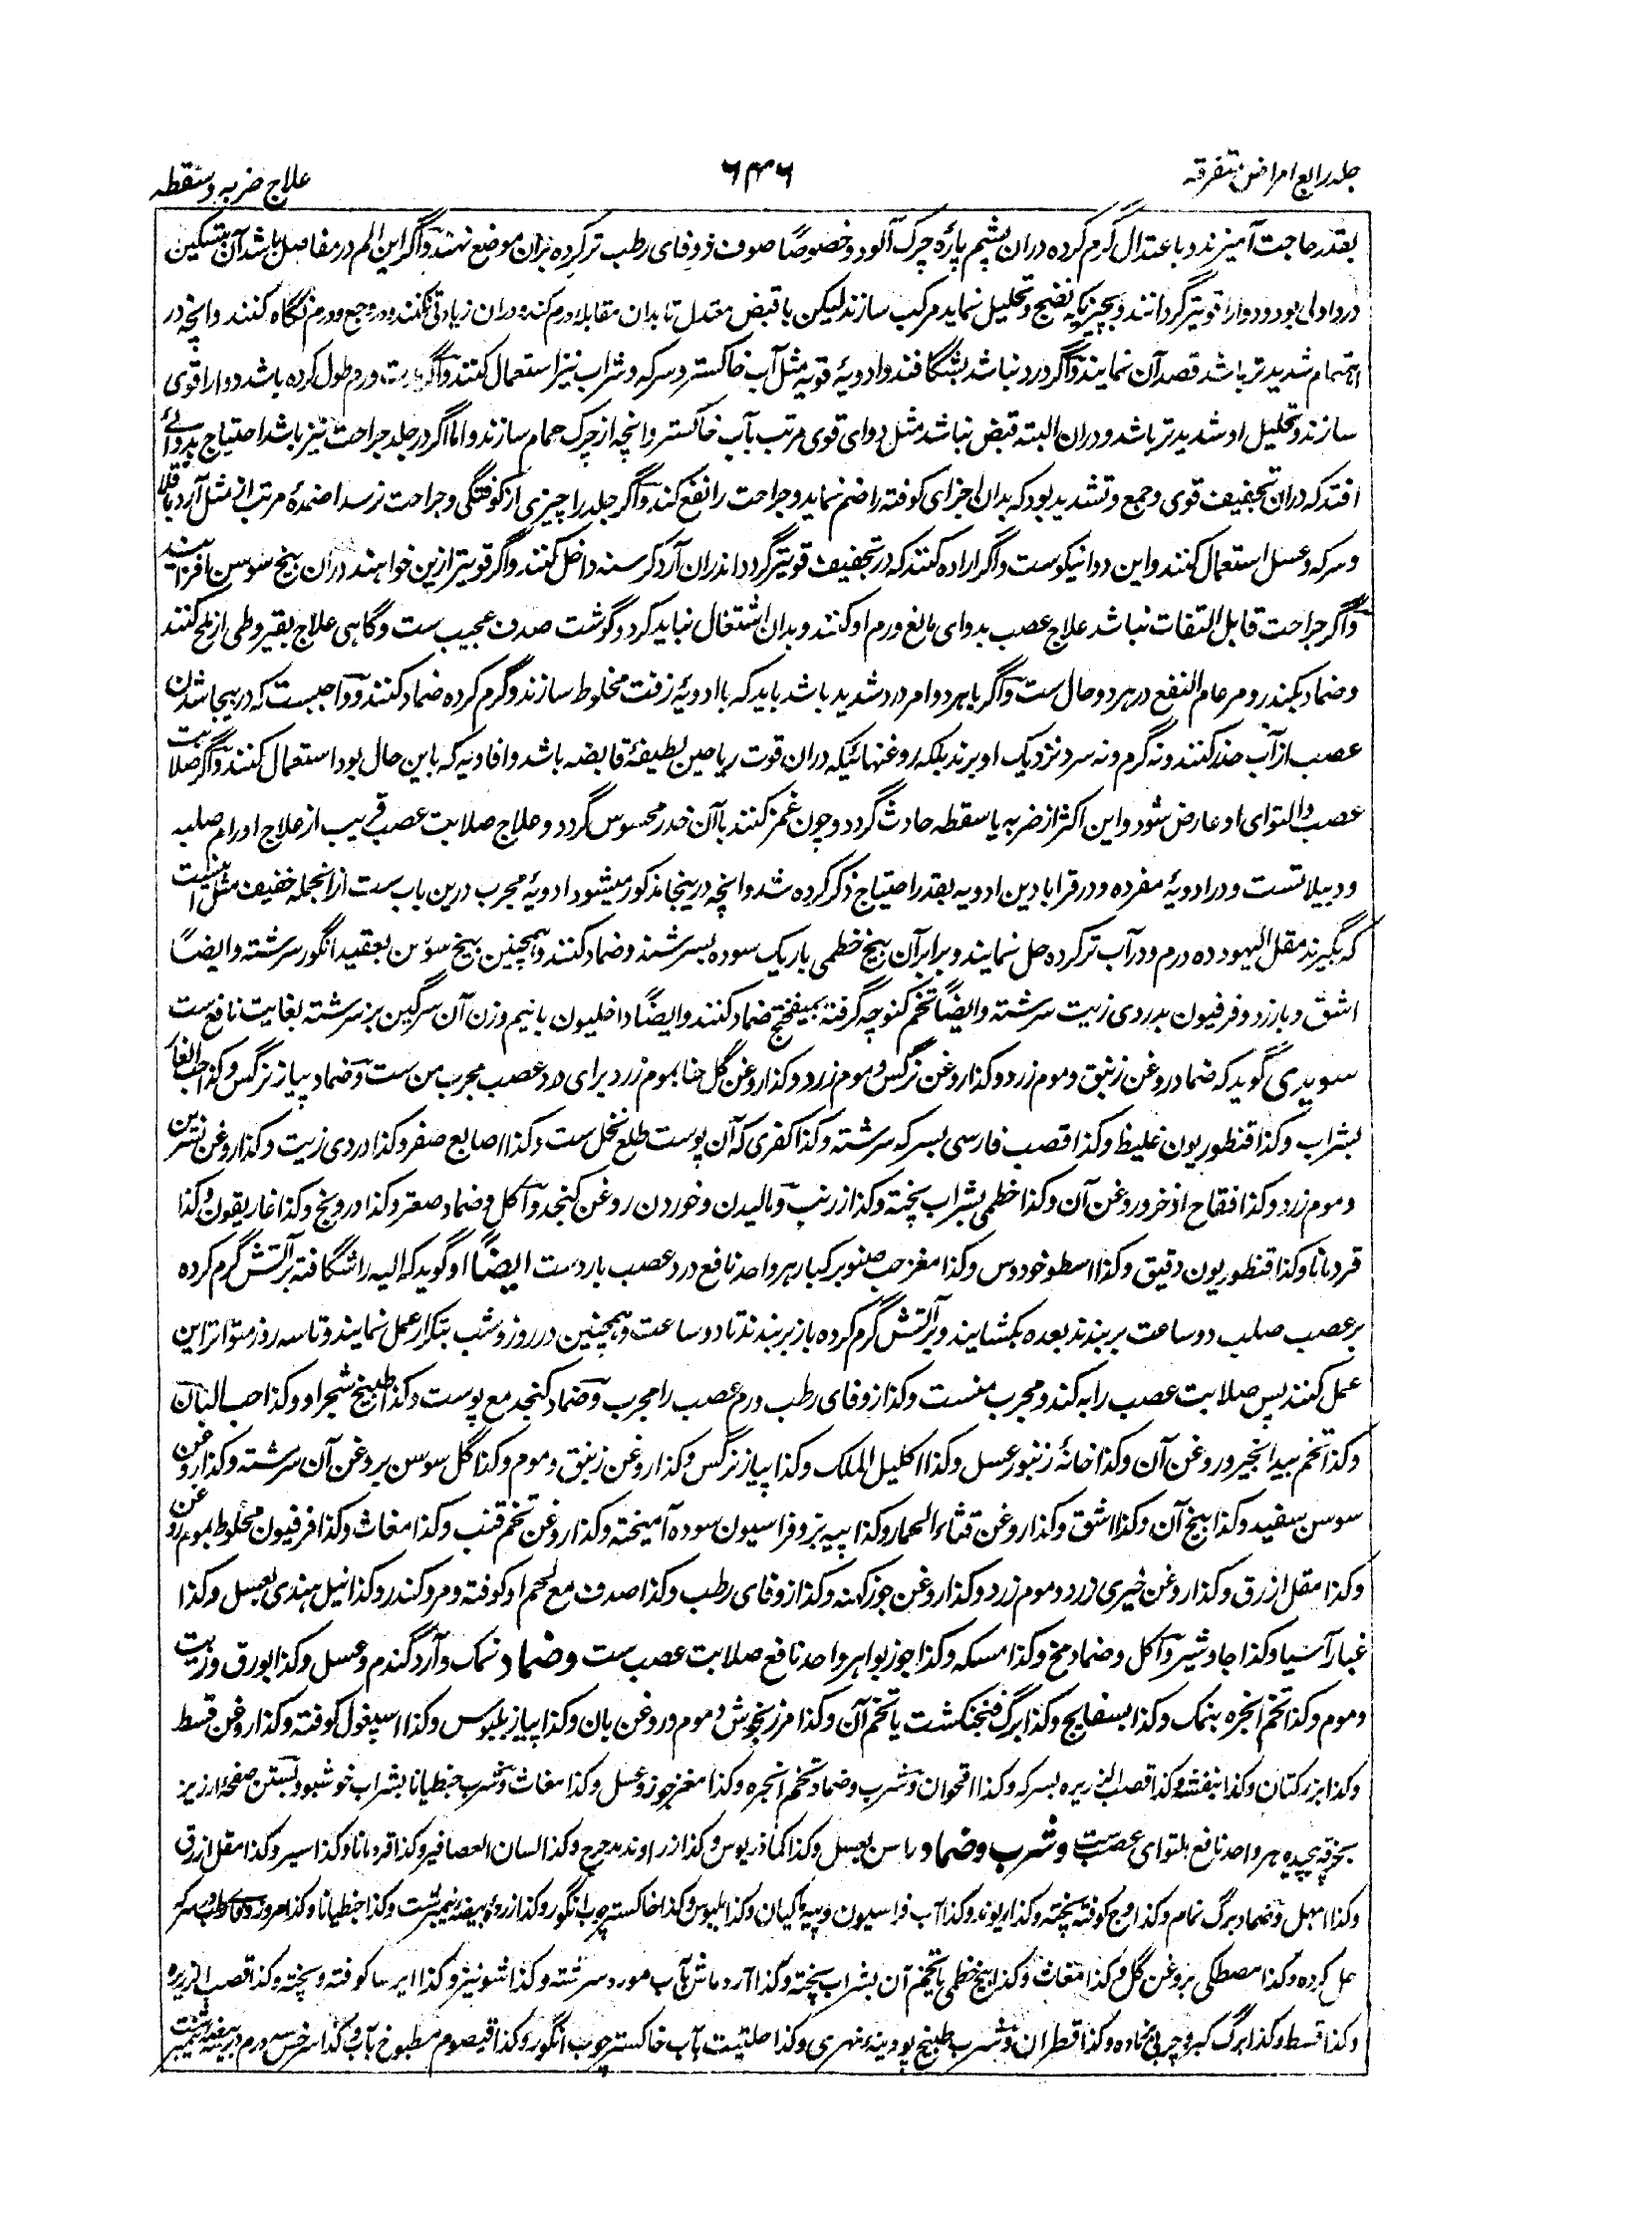 جلد رابع امراض متفرقه
۶۴۶
علاج ضربه و سقطه
بقدر حاجت آمیزند و باعتدال گرم کرده دران پشم پارهٔ چرک آلود و خصوصاً صوف زوفای رطب تر کرده بران موضع نهند و اگر این الم در مفاصل باشد آن بتسکین
درد اولی بود و دوا را قویتر گردانند و بچیزیکه نضج و تحلیل نماید مرکب سازند لیکن با قبض معتدل تا بدان مقابله ورم کند و دران زیادتی نکنند و در وجع و ورم نگاه کنند و انچه در
اهتمام شدیدتر باشد قصد آن نمایند و اگر درد نباشد بشگافند و ادویهٔ قویه مثل آب خاکستر و سرکه و شراب نیز استعمال کنند و اگر مدت ورم طول کرده باشد دوا را قوی
سازند و تحلیل او شدیدتر باشد و دران البته قبض نباشد مثل دوای قوی مرتب بآب خاکستر و انچه از چرک حمام سازند و اما اگر در جلد جراحت نیز باشد احتیاج بدوائے
افتد که دران تجفیف قوی و جمع و تشدید بود که بدان اجزای کوفته را ضم نماید و جراحت را نفع کند و اگر جلد را چیزی از کوفتگی و جراحت نرسد اضمدهٔ مرتب از مثل آرد باقلا
و سرکه و عسل استعمال کنند و این دوا نیکوست و اگر اراده کنند که در تجفیف قویتر گردد اندران آرد کرسنه داخل کنند و اگر قویتر ازین خواهند دران بیخ سوسن افزایند
و اگر جراحت قابل التفات نباشد علاج عصب بدوای مانع ورم او کنند و بدان اشتغال نباید کرد و گوشت صدف عجیب ست و گاهی علاج بقیروطی از ملح کنند
و ضماد بکندر و مر عام النفع در هر دو حال ست و اگر با هر دو امر درد شدید باشد باید که با ادویهٔ زفت مخلوط سازند و گرم کرده ضماد کنند و واجبست که در بیجا شدن
عصب از آب حذر کنند و نه گرم و نه سرد نزدیک او برند بلکه روغنهائیکه دران قوت ریاحین لطیفهٔ قابضه باشد و افاویه که باین حال بود استعمال کنند و اگر صلابت
عصب و التوای او عارض شود و این اکثر از ضربه یا سقطه حادث گردد و چون غمز کنند با آن خدر محسوس گردد و علاج صلابت عصب قریب از علاج اورام صلبه
و دبیلاتست و در ادویهٔ مفرده و در قرابادین ادویه بقدر احتیاج ذکر کرده شد و انچه درینجا مذکور میشود ادویهٔ مجرب درین باب ست ازانجمله خفیف مثل اینست
که بگیرند مقل الیهود ده درم و در آب تر کرده حل نمایند و برابر آن بیخ خطمی باریک سوده بسرشند و ضماد کنند و همچنین بیخ سوسن بعقید انگور سرشته و ایضاً
اشق و بارزد و فرفیون بدردی زیت سرشته و ایضاً تخم کنوچه گرفته بمیفختج ضماد کنند و ایضاً داخلیون با نیم وزن آن سرگین بز سرشته بغایت نافع ست
سویدی گوید که ضماد روغن زنبق و موم زرد و کذا روغن نرگس و موم زرد و کذا روغن گل حنا بموم زرد برای درد عصب مجرب من ست و ضماد پیاز نرگس و کذا حب الغار
بشراب و کذا قنطوریون غلیظ و کذا قصب فارسی بسرکه سرشته و کذا کفری که آن پوست طلع نخل ست و کذا اصابع صفر و کذا دردی زیت و کذا روغن نسرین
و موم زرد و کذا فقاح اذخر و روغن آن و کذا خطمی بشراب پخته و کذا زرنب و مالیدن و خوردن روغن کنجد و اکل و ضماد صعتر و کذا درونج و کذا غاریقون و کذا
قردمانا و کذا قنطوریون دقیق و کذا اسطوخودوس و کذا مغز حب صنوبر کبار هر واحد نافع درد عصب باردست ایضاً او گوید که الیه را شگافته بر آتش گرم کرده
بر عصب صلب دو ساعت بر بندند بعده بکشایند و بر آتش گرم کرده باز بر بندند تا دو ساعت و همچنین در روز و شب بتکرار عمل نمایند و تا سه روز متواتر این
عمل کنند پس صلابت عصب را به کند و مجرب منست و کذا زوفای رطب ورم عصب را مجرب و ضماد کنجد مع پوست و کذا طبیخ شجر او و کذا حب البان
و کذا تخم بیدانجیر و روغن آن و کذا خانهٔ زنبور عسل و کذا اکلیل الملک و کذا پیاز نرگس و کذا روغن زنبق و موم و کذا گل سوسن بروغن آن سرشته و کذا روغن
سوسن سفید و کذا بیخ آن و کذا اشق و کذا روغن قثاء الحمار و کذا پیه بز و فراسیون سوده آمیخته و کذا روغن تخم قنب و کذا مغاث و کذا فرفیون مخلوط بموم روغن
و کذا مقل ازرق و کذا روغن خیری زرد و موم زرد و کذا روغن جوز کهنه و کذا زوفای رطب و کذا صدف مع لحم او کوفته و مر و کندر و کذا نیل هندی بعسل و کذا
غبار آسیا و کذا جاوشیر و اکل و ضماد مخ و کذا مسکه و کذا جوزبوا هر واحد نافع صلابت عصب ست و ضماد نمک و آرد گندم و عسل و کذا بورق و زیت
و موم و کذا تخم انجره بنمک و کذا بسفایج و کذا برگ فنجنکشت یا تخم آن و کذا مرزنجوش و موم و روغن بان و کذا پیاز بلبوس و کذا اسپغول کوفته و کذا روغن قسط
و کذا بزر کتان و کذا بنفشه و کذا قصب الذریره بسرکه و کذا اقحوان و شرب و ضماد تخم انجره و کذا مغز جوز و عسل و کذا مغاث و شرب جنطیانا بشراب خوشبو و بستن صفحه ارزیز
بخرقه پیچیده هر واحد نافع بلتوای عصبست و شرب و ضماد راسن بعسل و کذا کماذریوس و کذا زراوند مدحرج و کذا لسان العصافیر و کذا قردمانا و کذا اسیر و کذا مقل ازرق
و کذا ابهل و ضماد برگ نمام و کذا وج کوفته پخته و کذا ریوند و کذا آب فراسیون و پیه ماکیان و کذا بلبوس و کذا خاکستر چوب انگور و کذا زردی بیضه نیمبرشت و کذا جنطیانا و کذا
حل کرده و کذا مصطکی بروغن گل و کذا مغاث و کذا بیخ خطمی یا تخم آن بشراب پخته و کذا آرد ماش بآب مورد سرشته و کذا شونیز و کذا ایرسا کوفته و پخته و کذا قصب الذریره
و کذا قسط و کذا برگ کبر و چربی نهاده و کذا قطران و شرب طبیخ پودینه نهری و کذا حلتیت بآب خاکستر چوب انگور و کذا قیصوم مطبوخ بآب و کذا سرخس سه درم در بیضه نیمبرشت